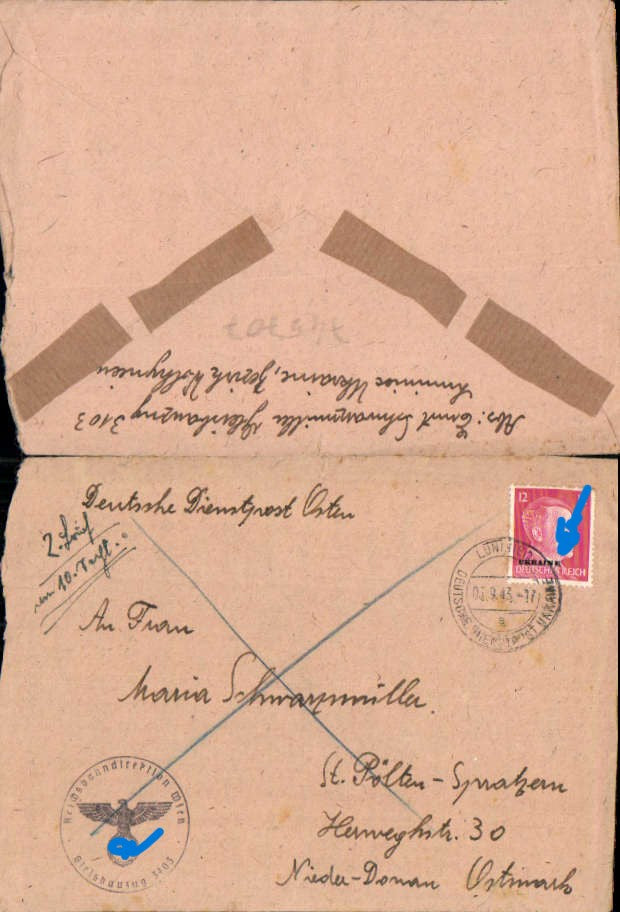 74⁵707
Abs: Ernst Schwarzmüller Gleisbauzug 3103
Luniniec Ukraine, Bezirk Wolhynien
Deutsche Dienstpost Osten
2. Brief
vom 10. Sept.
12
UKRAINE
DEUTSCHES REICH
LUNINIEC
03.9.43.-17
a
DEUTSCHE DIENSTPOST UKRAINE
An Frau
Maria Schwarzmüller.
St. Pölten-Spratzern
Herweghstr. 30
Nieder-Donau Ostmark
Reichsbahndirektion Wien
Gleisbauzug 3103